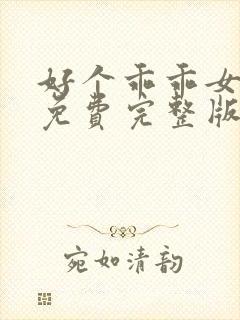 好个乖乖女
免费完整版
宛如清韵